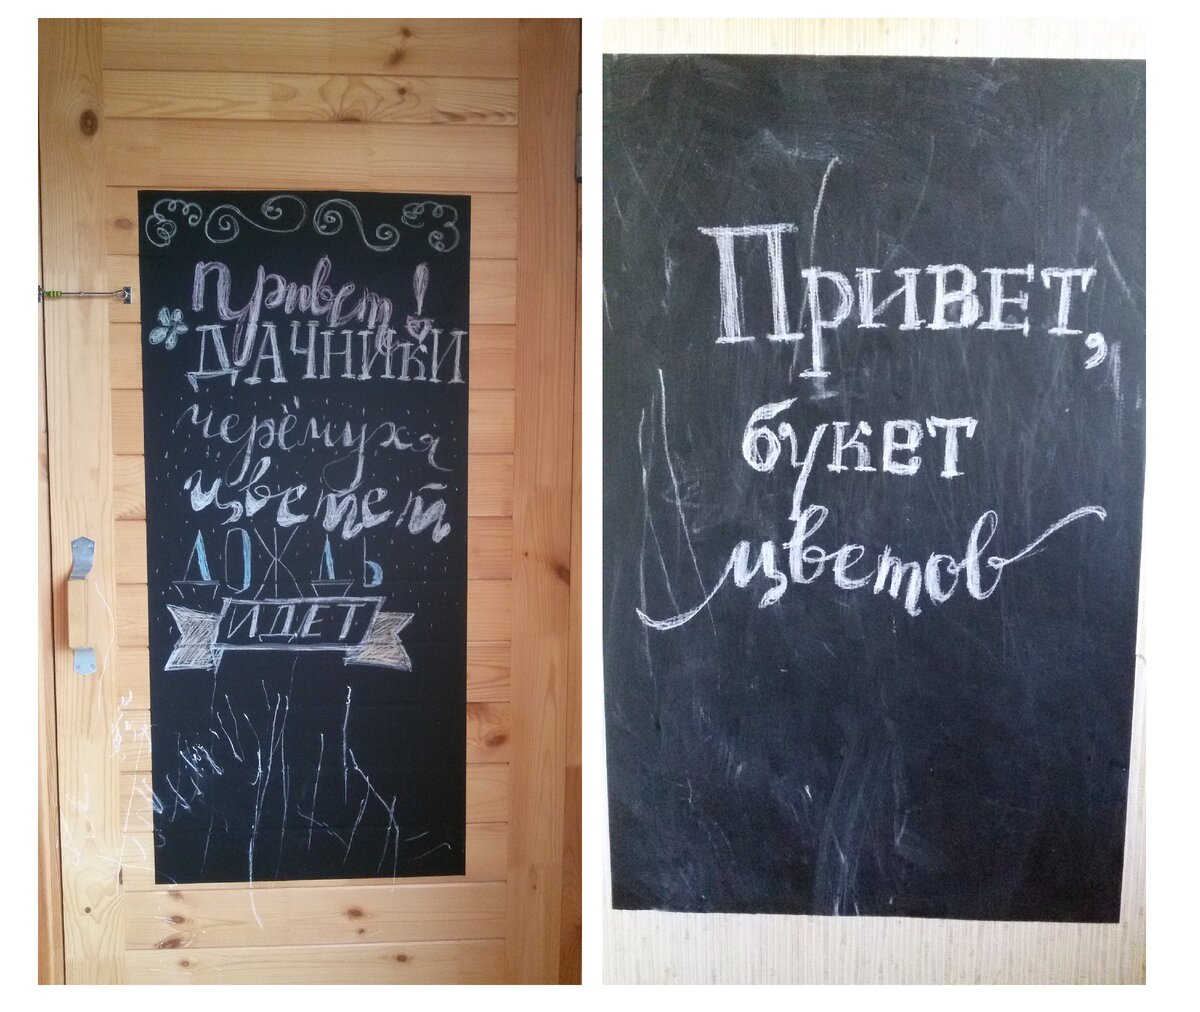 Привет!
ДАЧНИКИ
черёмуха
цветет
ДОЖДЬ
ИДЕТ
Привет,
букет
цветов